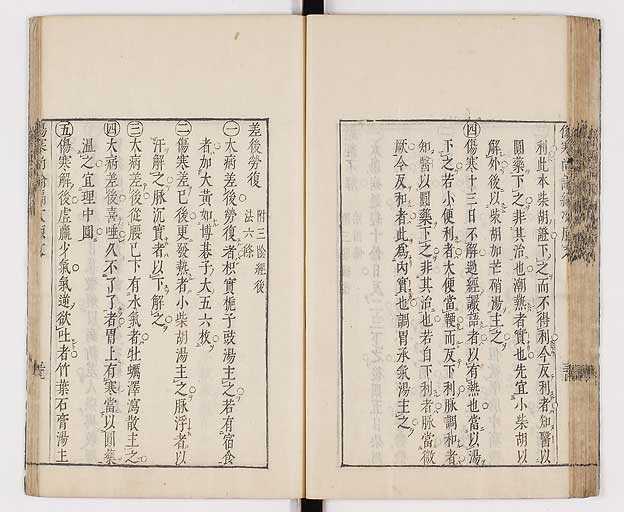 利此本柴胡證下之而不得利今反利者知醫以
圓藥下之非其治也潮熱者實也先宜小柴胡以
解外後以柴胡加芒硝湯主之
㊃傷寒十三日不解過經讝語者以有熱也當以湯
下之若小便利者大便當鞕而反下利脉調和者
知醫以圓藥下之非其治也若自下利者脉當微
厥今反和者此為內實也調胃承氣湯主之
差後勞復
附三陰經後
法六條
㊀大病差後勞復者枳實梔子豉湯主之若有宿食
者加大黃如博碁子大五六枚
㊁傷寒差已後更發熱者小柴胡湯主之脉浮者以
汗解之脉沉實者以下解之
㊂大病差後從腰已下有水氣者牡蠣澤瀉散主之
㊃大病差後喜唾久不了了者胃上有寒當以圓藥
溫之宜理中圓
㊄傷寒解後虛羸少氣氣逆欲吐者竹葉石膏湯主